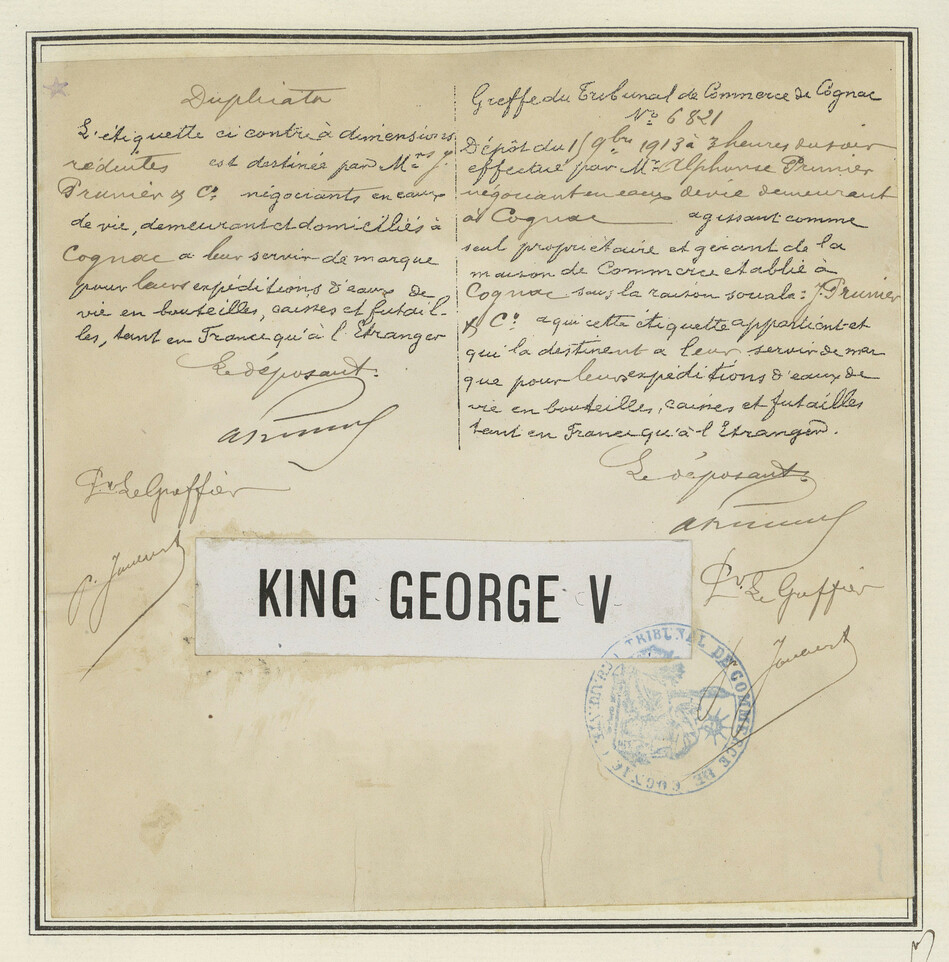 Duplicata
L'étiquette ci contre à dimensions
réduites est destinée par Mrs J.
Prunier & Co négociants en eaux
de vie, demeurant et domiciliés à
Cognac a leur servir de marque
pour leurs expéditions d'eaux de
vie en bouteilles, caisses et futail-
les, tant en France qu'à l'Etranger
Le déposant.
Pr Le Greffier
Greffe du Tribunal de Commerce de Cognac
No 6821
Dépôt du 9bre 1913 à 3 heures du soir
effectué par Mr Alphonse Prunier
négociant en eaux de vie demeurant
à Cognac agissant comme
seul propriétaire et gérant de la
maison de Commerce etablie à
Cognac sous la raison sociale: J. Prunier
& Co a qui cette étiquette appartient et
qui la destinent a leur servir de mar
que pour leurs expéditions d'eaux de
vie en bouteilles, caisses et futailles
tant en France qu'à l'Etranger.
Le déposant.
Pr Le Greffier
KING GEORGE V
TRIBUNAL DE COMMERCE DE COGNAC